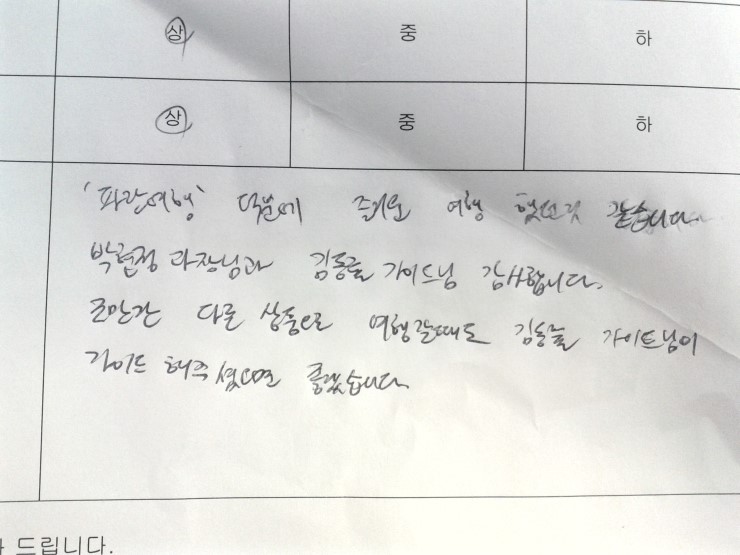 상 중 하
상 중 하
'파란여행' 덕분에 즐거운 여행 했던것 같습니다.
박현정 과장님과 김동률 가이드님 감사합니다.
조만간 다른 상품으로 여행갈때도 김동률 가이드님이
가이드 해주셨으면 좋겠습니다.
드립니다.